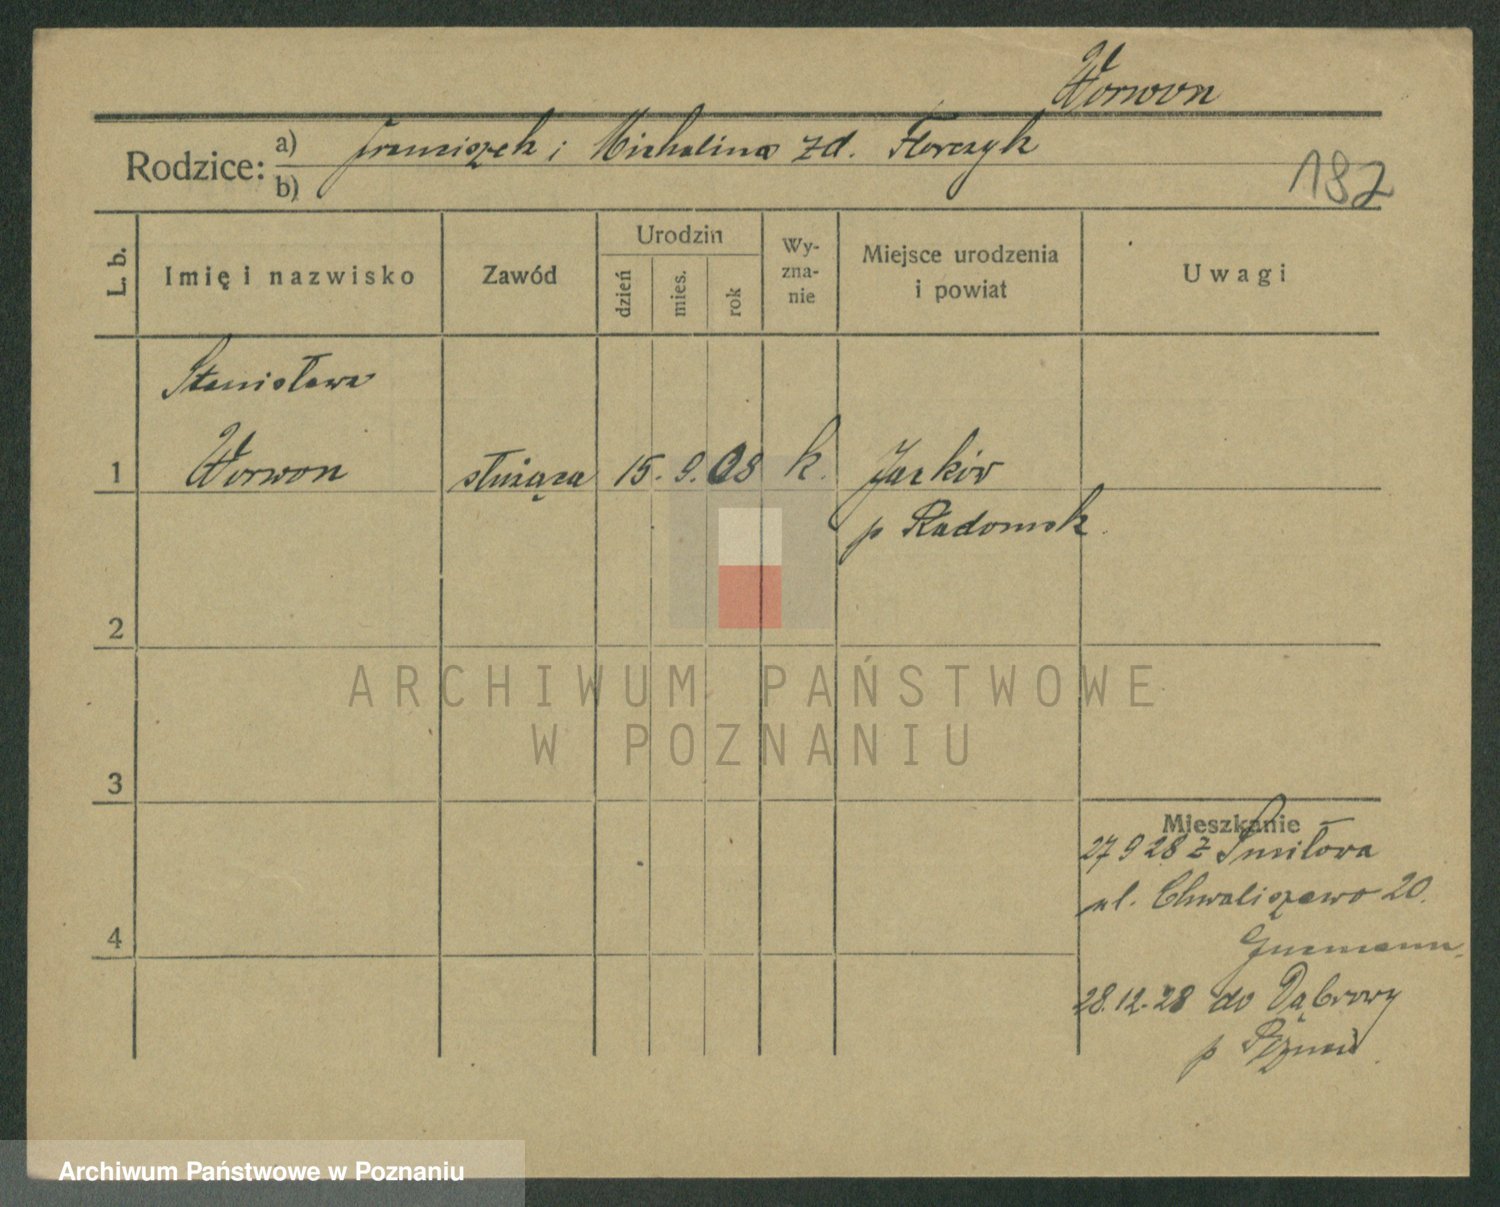 Worwon
Rodzice: a) Franciszek i Michalina zd. Florczyk
b)
187
L. b.
Imię i nazwisko
Zawód
Urodzin
dzień
mies.
rok
Wy-
zna-
nie
Miejsce urodzenia
i powiat
Uwagi
Stanisława
1 Worwon służąca 15. 9. 08 k. Jaków
p Radomsk.
2
3
4
Mieszkanie
27 9 28 z Smiłowa
ul. Chwaliszewo 20.
28.12.28 do Dąbrowy
p Poznań.
ARCHIWUM PAŃSTWOWE
W POZNANIU
Archiwum Państwowe w Poznaniu